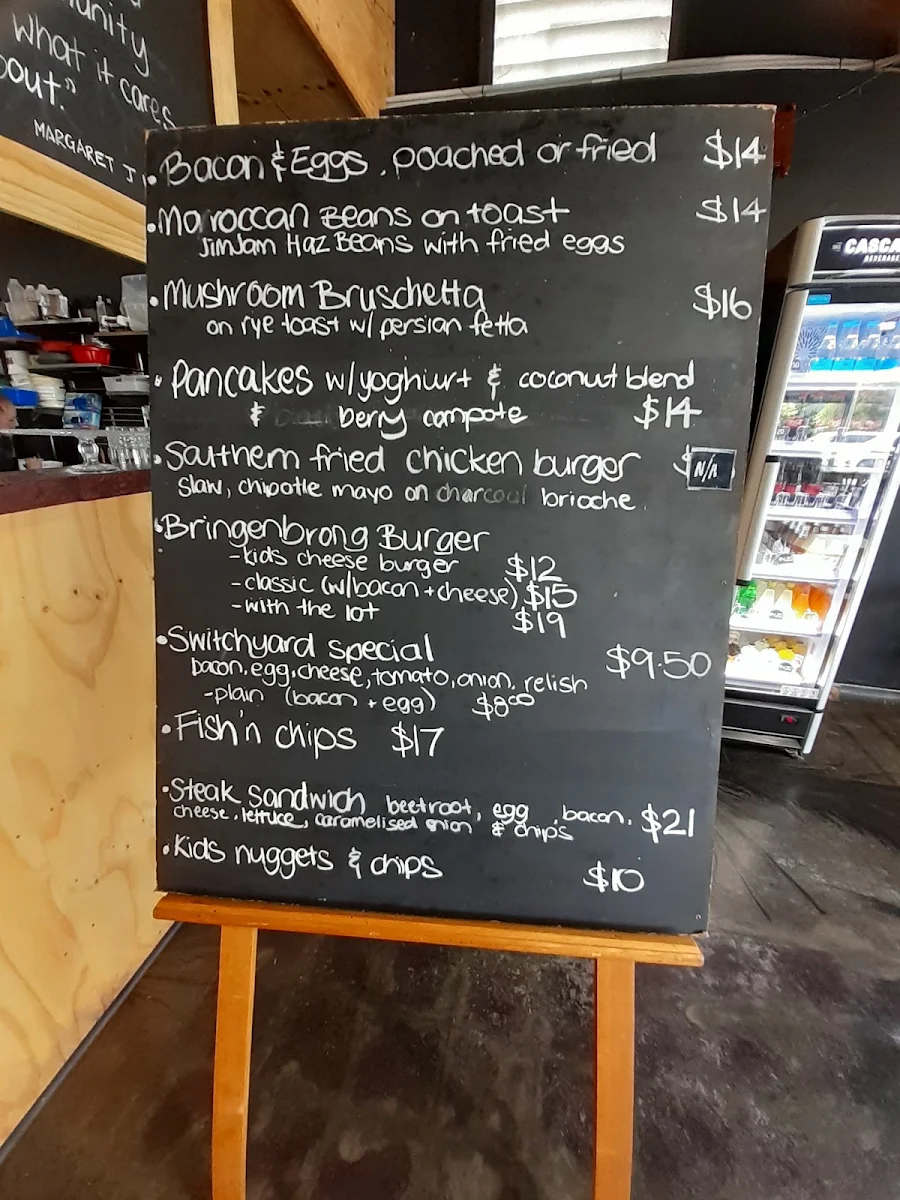 unity
What it cares
bout."
MARGARET J
• Bacon & Eggs, poached or fried $14
• Moroccan Beans on toast $14
JimJam Haz Beans with fried eggs
• Mushroom Bruschetta $16
on rye toast w/ persian fetta
• Pancakes w/yoghurt & coconut blend
& berry compote $14
• Southern fried chicken burger $ N/A
slaw, chipotle mayo on charcoal brioche.
• Bringenbrong Burger
-kids cheese burger $12
-classic (w/bacon + cheese) $15
-with the lot $19
• Switchyard special $9.50
bacon, egg, cheese, tomato, onion, relish
-plain (bacon + egg) $800
• Fish'n chips $17
• Steak sandwich beetroot, egg, bacon, $21
cheese, lettuce, caramelised onion & chips
• Kids nuggets & chips $10
CASCA
BEVERAGE